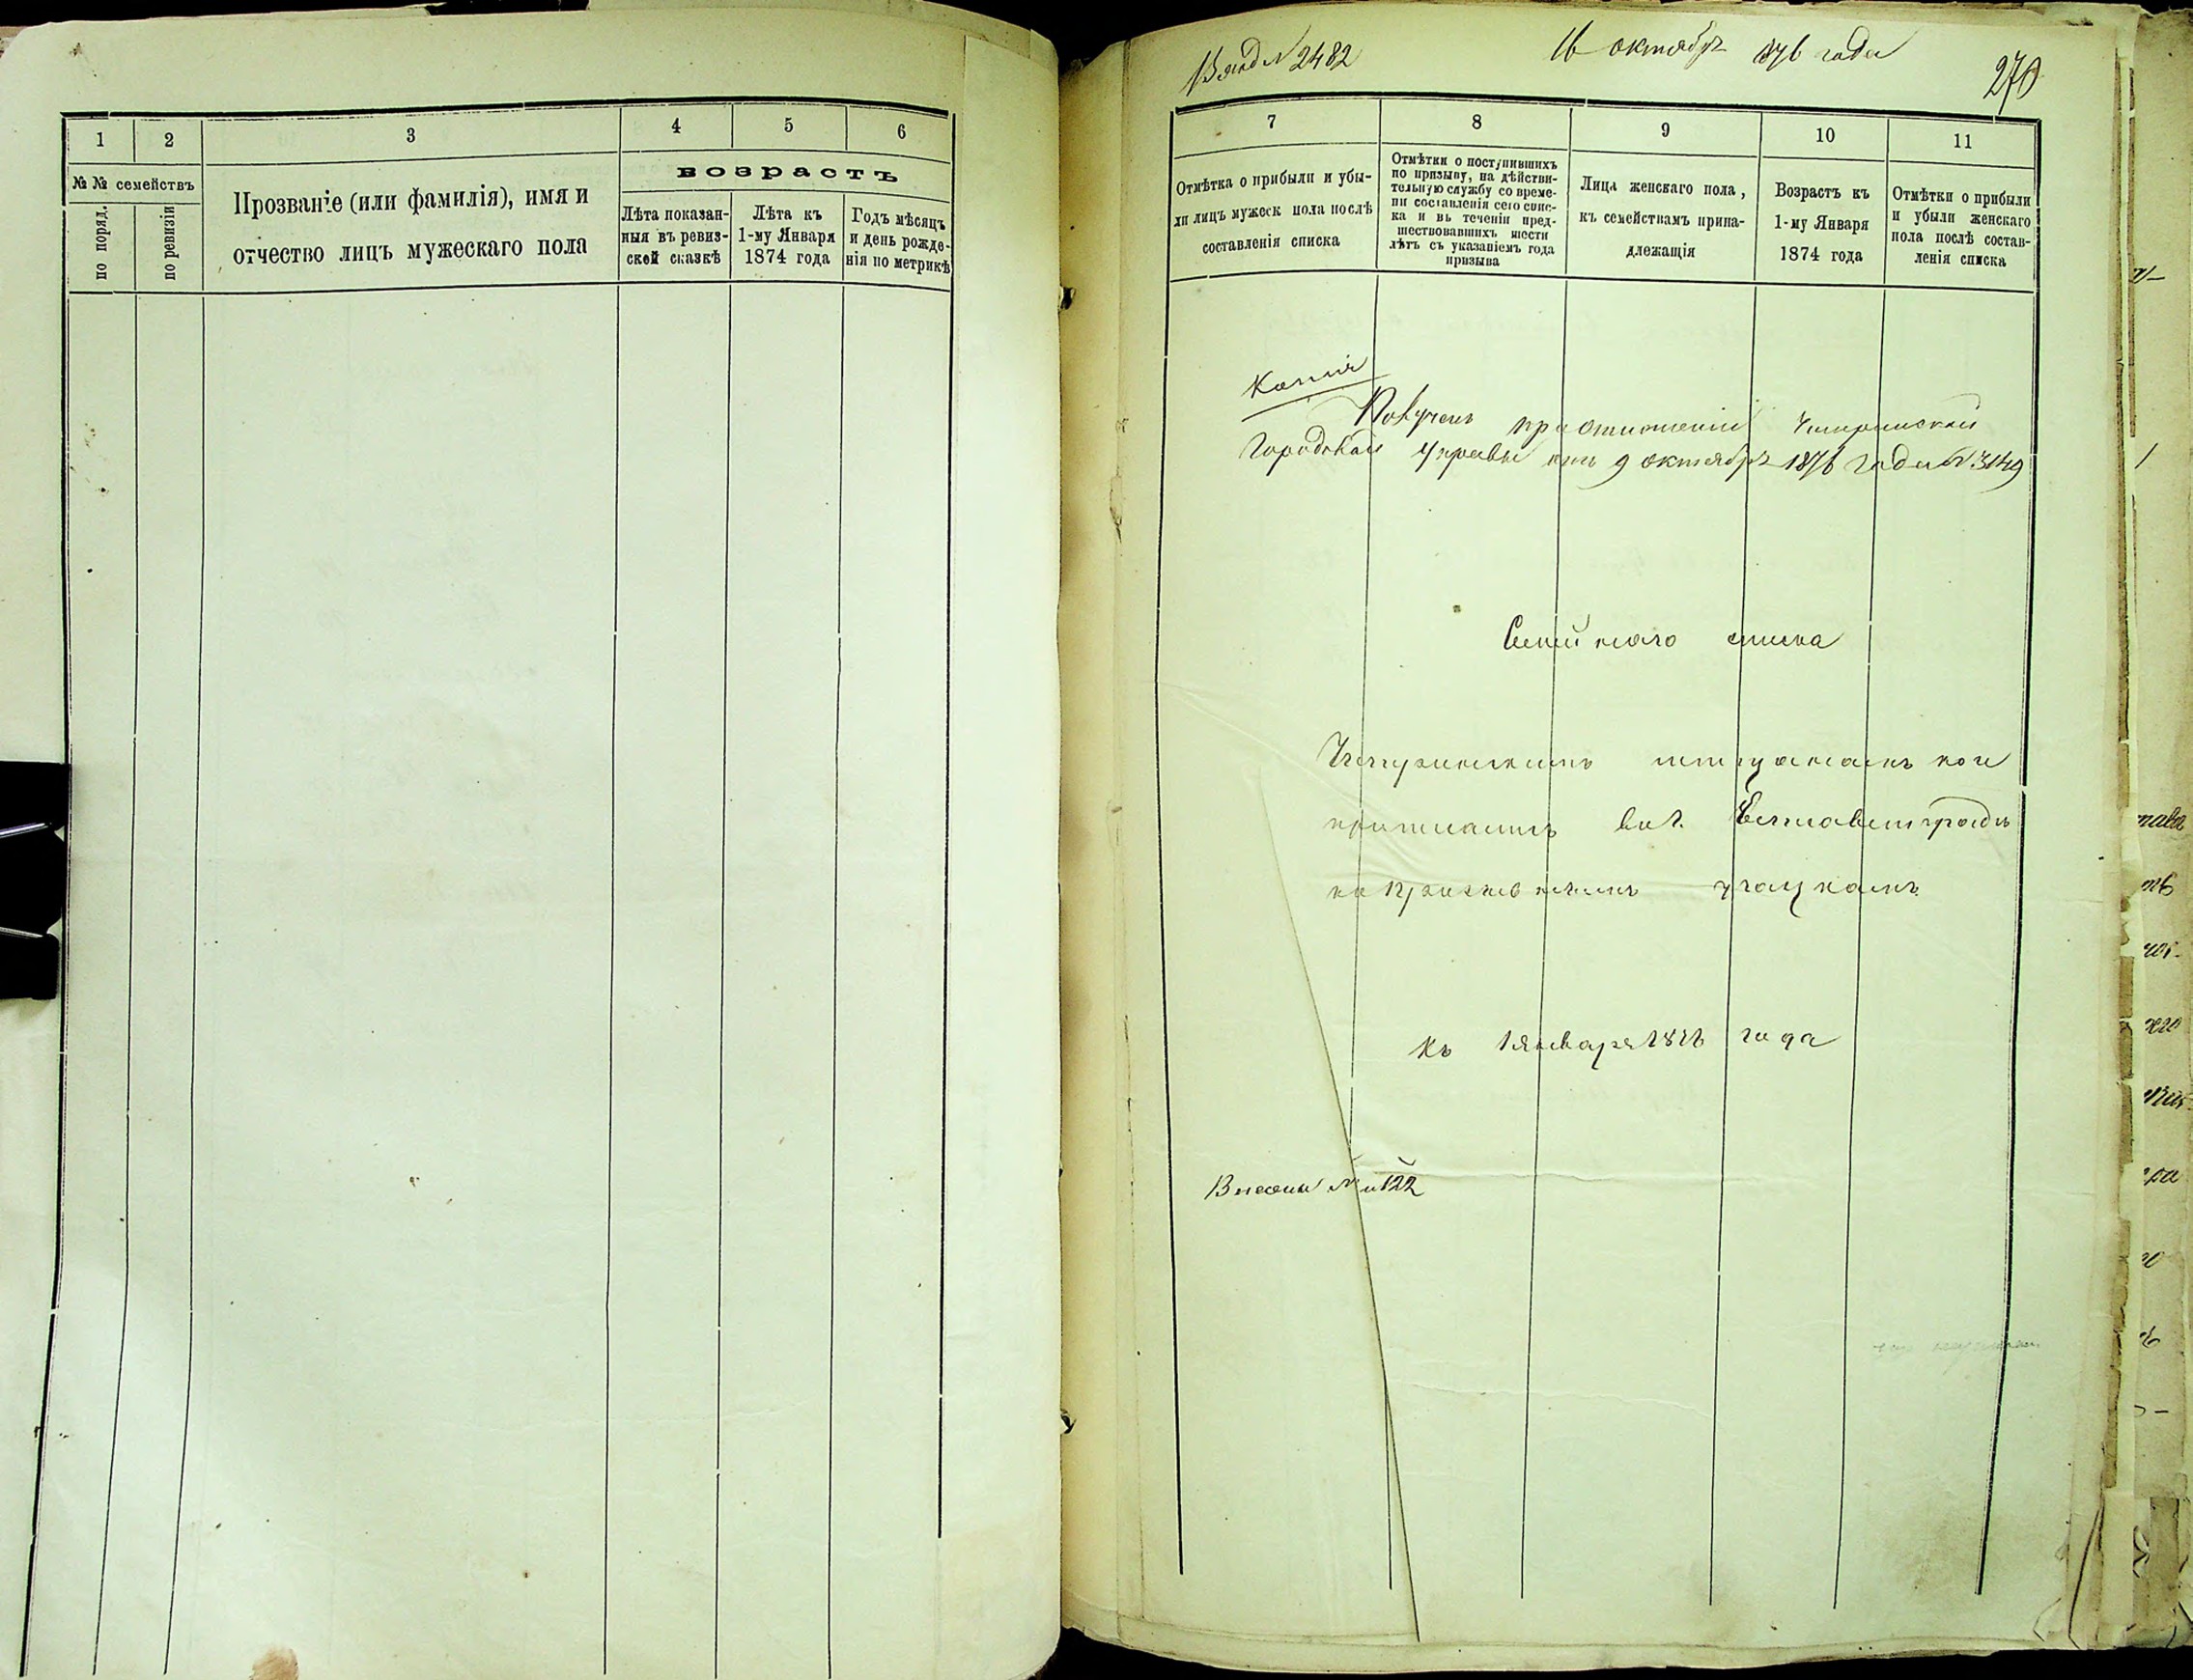 1 2 3 4 5 6
№№ семействъ
по поряд.
по ревизіи
Прозваніе (или фамилія), имя и
отчество лицъ мужескаго пола
возрастъ
Лѣта показан-
ныя въ ревиз-
ской сказкѣ
Лѣта къ
1-му Января
1874 года
Годъ мѣсяцъ
и день рожде-
нія по метрикѣ
№ 2482
16 октября 1876 года
270
7 8 9 10 11
Отмѣтка о прибыли и убы-
ли лицъ мужеск пола послѣ
составленія списка
Отмѣтки о поступившихъ
по призыву, на дѣйстви-
тельную службу со време-
ни составленія сего спис-
ка и въ теченіи пред-
шествовавшихъ шести
лѣтъ съ указаніемъ года
призыва
Лица женскаго пола,
къ семействамъ прина-
длежащія
Возрастъ къ
1-му Января
1874 года
Отмѣтки о прибыли
и убыли женскаго
пола послѣ состав-
ленія списка
Копія
Получен при отношеніи Чигиринской
Городской Управы отъ 9 октября 1876 года № 3149
Семейнаго списка
Чигиринскимъ мѣщанамъ кои
приписаны въ г. Елисаветградѣ
къ призывнымъ участкамъ
Къ 1 января 187 года
№ 122